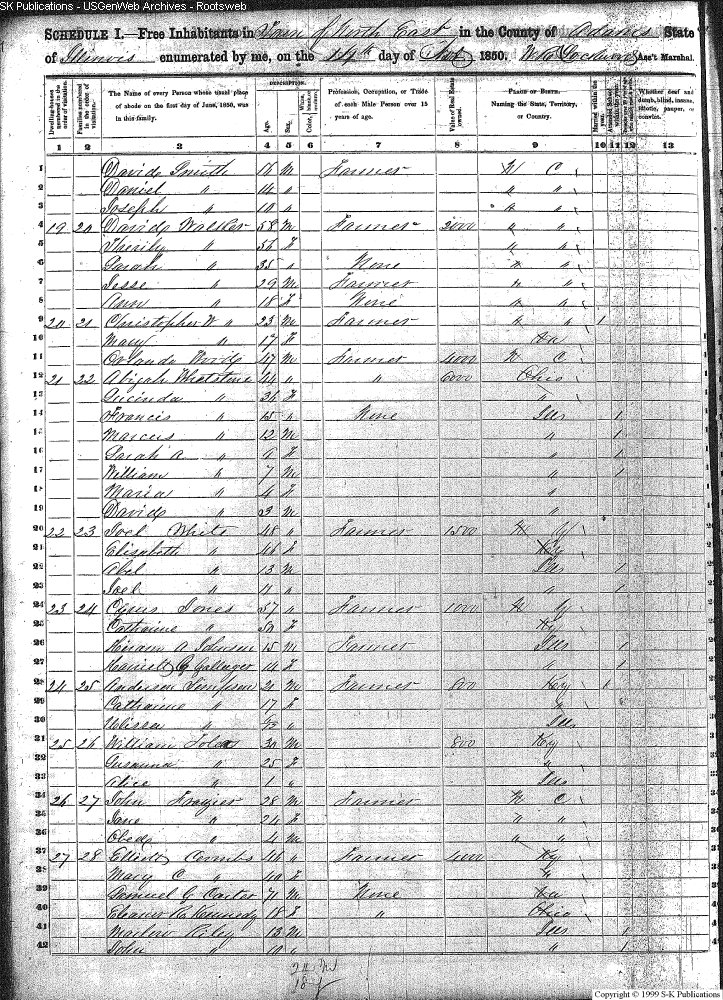 SK Publications - USGenWeb Archives - Rootsweb
SCHEDULE I.—Free Inhabitants in Town of North East in the County of Adams State
of Illinois enumerated by me, on the 14th day of 1850. Ass't Marshal.
Dwelling-houses numbered in the order of visitation. Families numbered in the order of visitation. The Name of every Person whose usual place of abode on the first day of June, 1850, was in this family. DESCRIPTION. Age. Sex. Color, Profession, Occupation, or Trade of each Male Person over 15 years of age. Value of Real Estate owned. PLACE OF BIRTH. Naming the State, Territory, or Country. Married within the year. Whether deaf and dumb, blind, insane, idiotic, pauper, or convict.
1 2 3 4 5 6 7 8 9 10 11 12 13
1 David Smith 16 M Farmer N C
2 Daniel " 14 " " "
3 Joseph " 10 " " "
4 19 20 David Walker 58 M Farmer 2000 " "
5 " 56 F " "
6 Sarah " 35 " None " "
7 Jesse " 29 M Farmer " "
8 Ann " 18 F None " "
9 20 21 Christopher W " 23 M Farmer " " 1
10 Mary " 17 F
11 Orlando Woods 47 M Farmer 4000 N C
12 21 22 Abijah Whetstone 44 " " 6000 Ohio
13 Lucinda " 36 F "
14 Francis " 15 " None Ills 1
15 Marcus " 12 M " 1
16 Sarah A " 9 F " 1
17 William " 7 M " 1
18 Maria " 4 F "
19 David " 3 M "
20 22 23 Joel White 48 " Farmer 1500
21 Elisabeth " 46 F Ky
22 Abel " 13 M Ills 1
23 Joel " 11 " " 1
24 23 24 Cyrus Jones 57 " Farmer 1000
25 Catharine " 50 F Ky
26 Hiram A Johnson 15 M Farmer Ills 1
27 Harriett G Gallager 14 F " 1
28 24 25 Anderson Simpson 21 M Farmer Ky 1
29 Catharine " 17 F "
30 " " Ills
31 25 26 William 30 M 800 Ky
32 Susanna " 25 F "
33 Alice " 1 " Ills
34 26 27 John Frazier 28 M Farmer N C
35 Jane " 24 F " "
36 Obed " 4 M " "
37 27 28 Elliott Combs 46 " Farmer 4000 Ky
38 Mary C " 40 F "
39 Samuel G Carter 71 M None
40 Eleanor R Kennedy 18 F " Ohio
41 Marlow Riley 13 M Ills 1
42 John " 10 " " 1
24 M
18 f
Copyright © 1999 S-K Publications